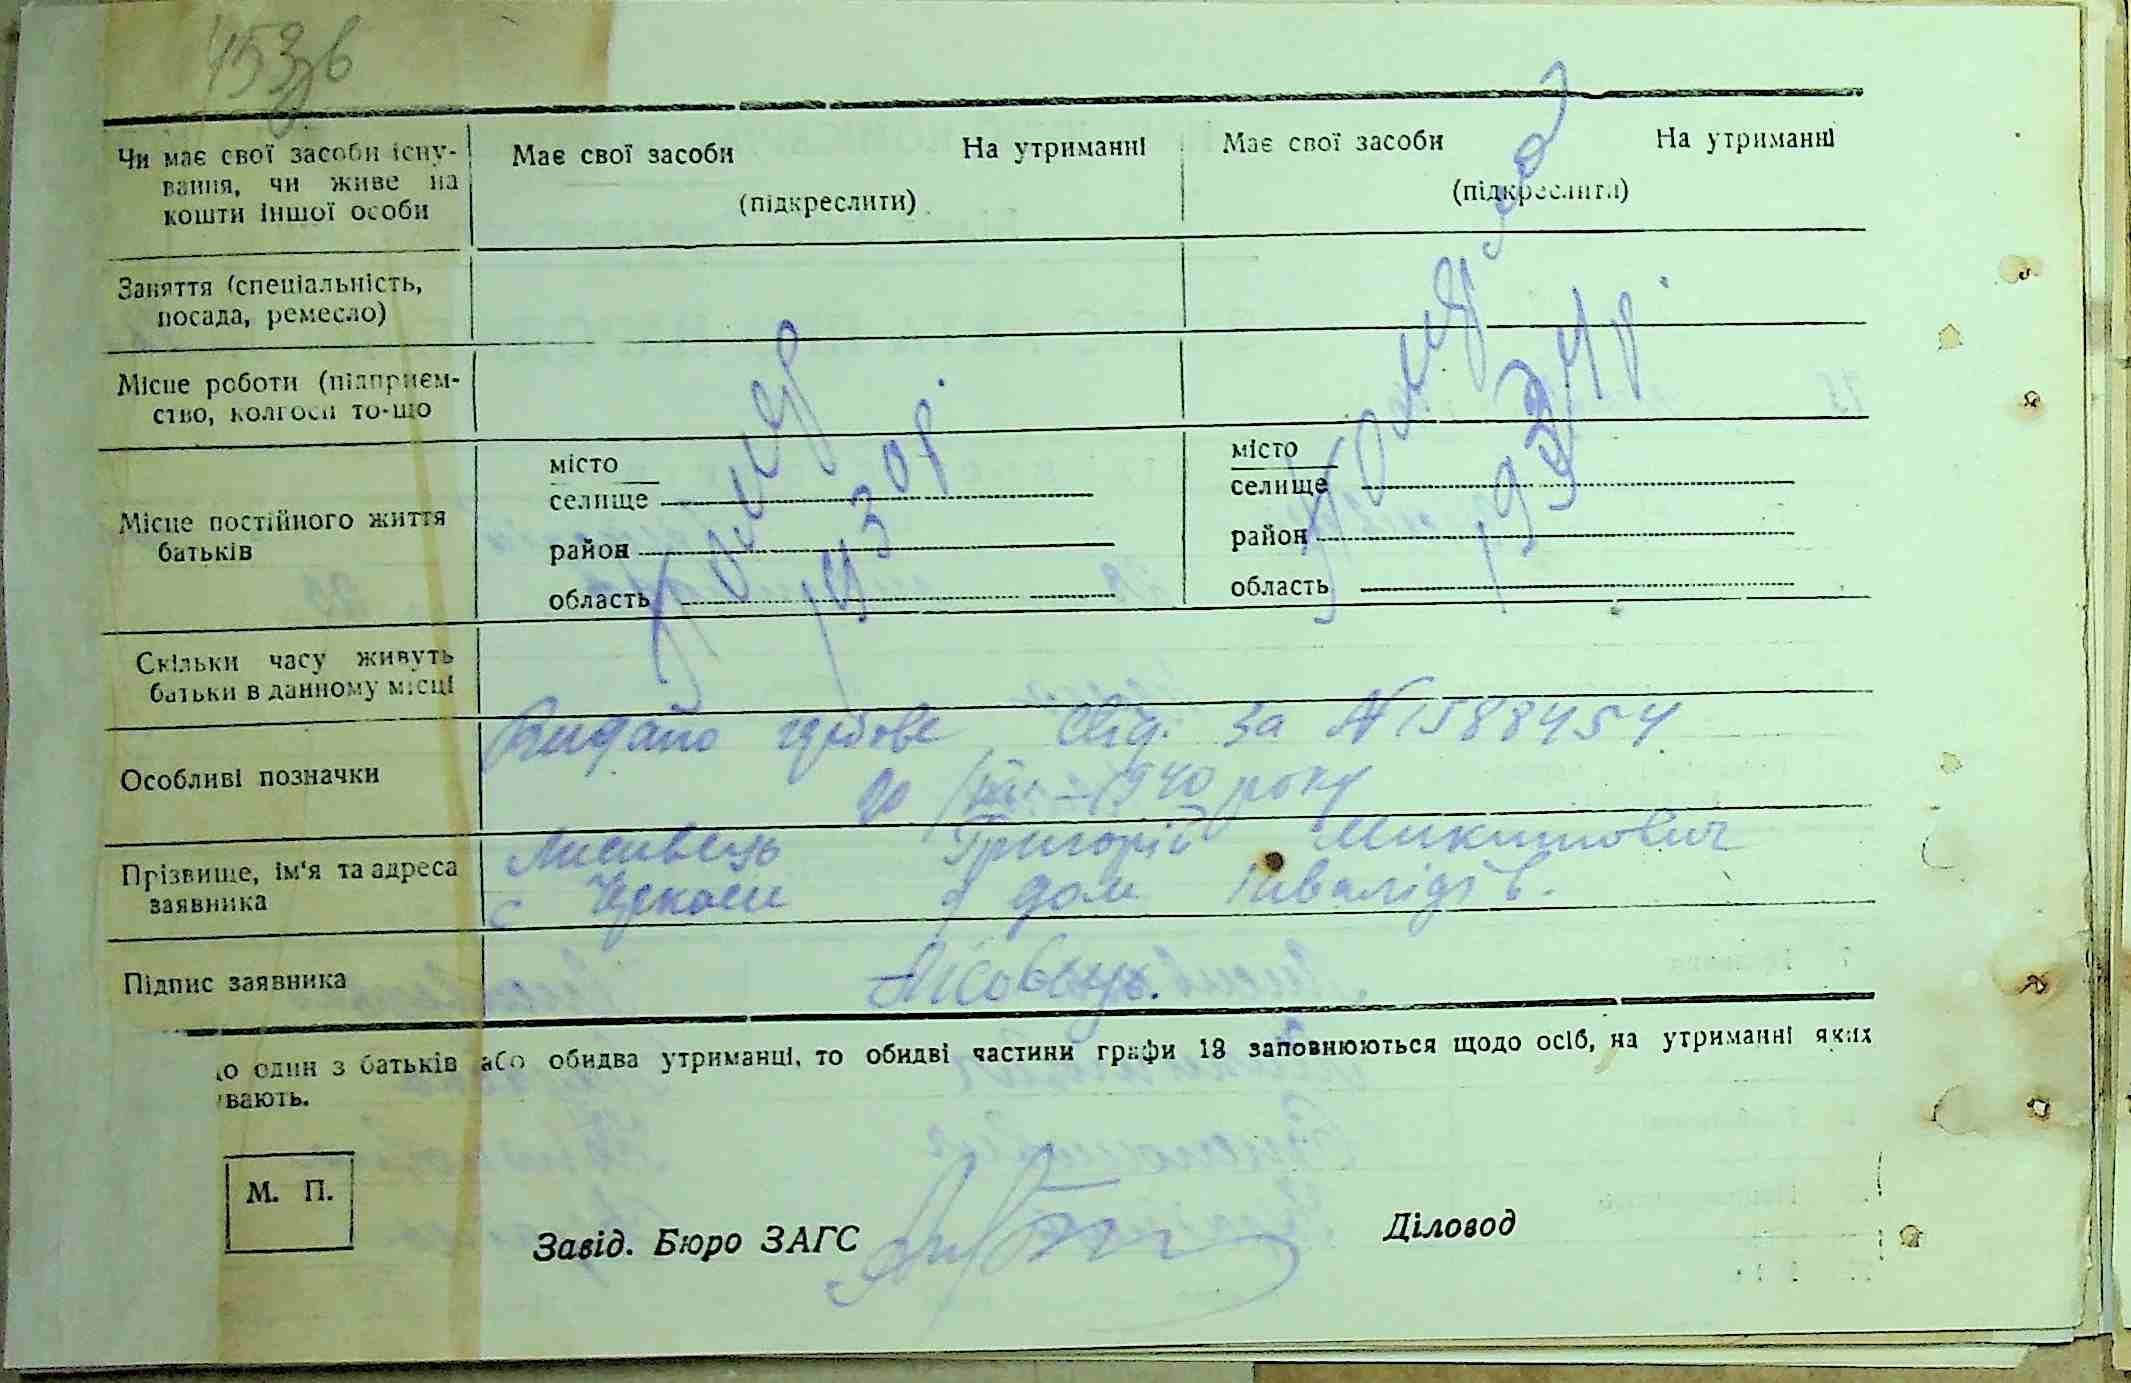 453зв
Чи має свої засоби існу-
вання, чи живе на
кошти іншої особи
Має свої засоби На утриманні
(підкреслити)
Має свої засоби На утриманні
(підкреслити)
Заняття (спеціальність,
посада, ремесло)
Місце роботи (підприєм-
ство, колгосп то-що
Місце постійного життя
батьків
місто
селище
район
область
Помер
1930р.
місто
селище
район
область
1934р.
Скільки часу живуть
батьки в данному місці
Особливі позначки
Видано здобове свід. за № 1588454
до 1940 року
Прізвище, ім'я та адреса
заявника
Лисивець Григорій Микитович
с Черкаси дом інвалідів.
Підпис заявника
Лісовець.
о один з батьків або обидва утриманці, то обидві частини графи 13 заповнюються щодо осіб, на утриманні яких
вають.
М. П.
Завід. Бюро ЗАГС
Діловод